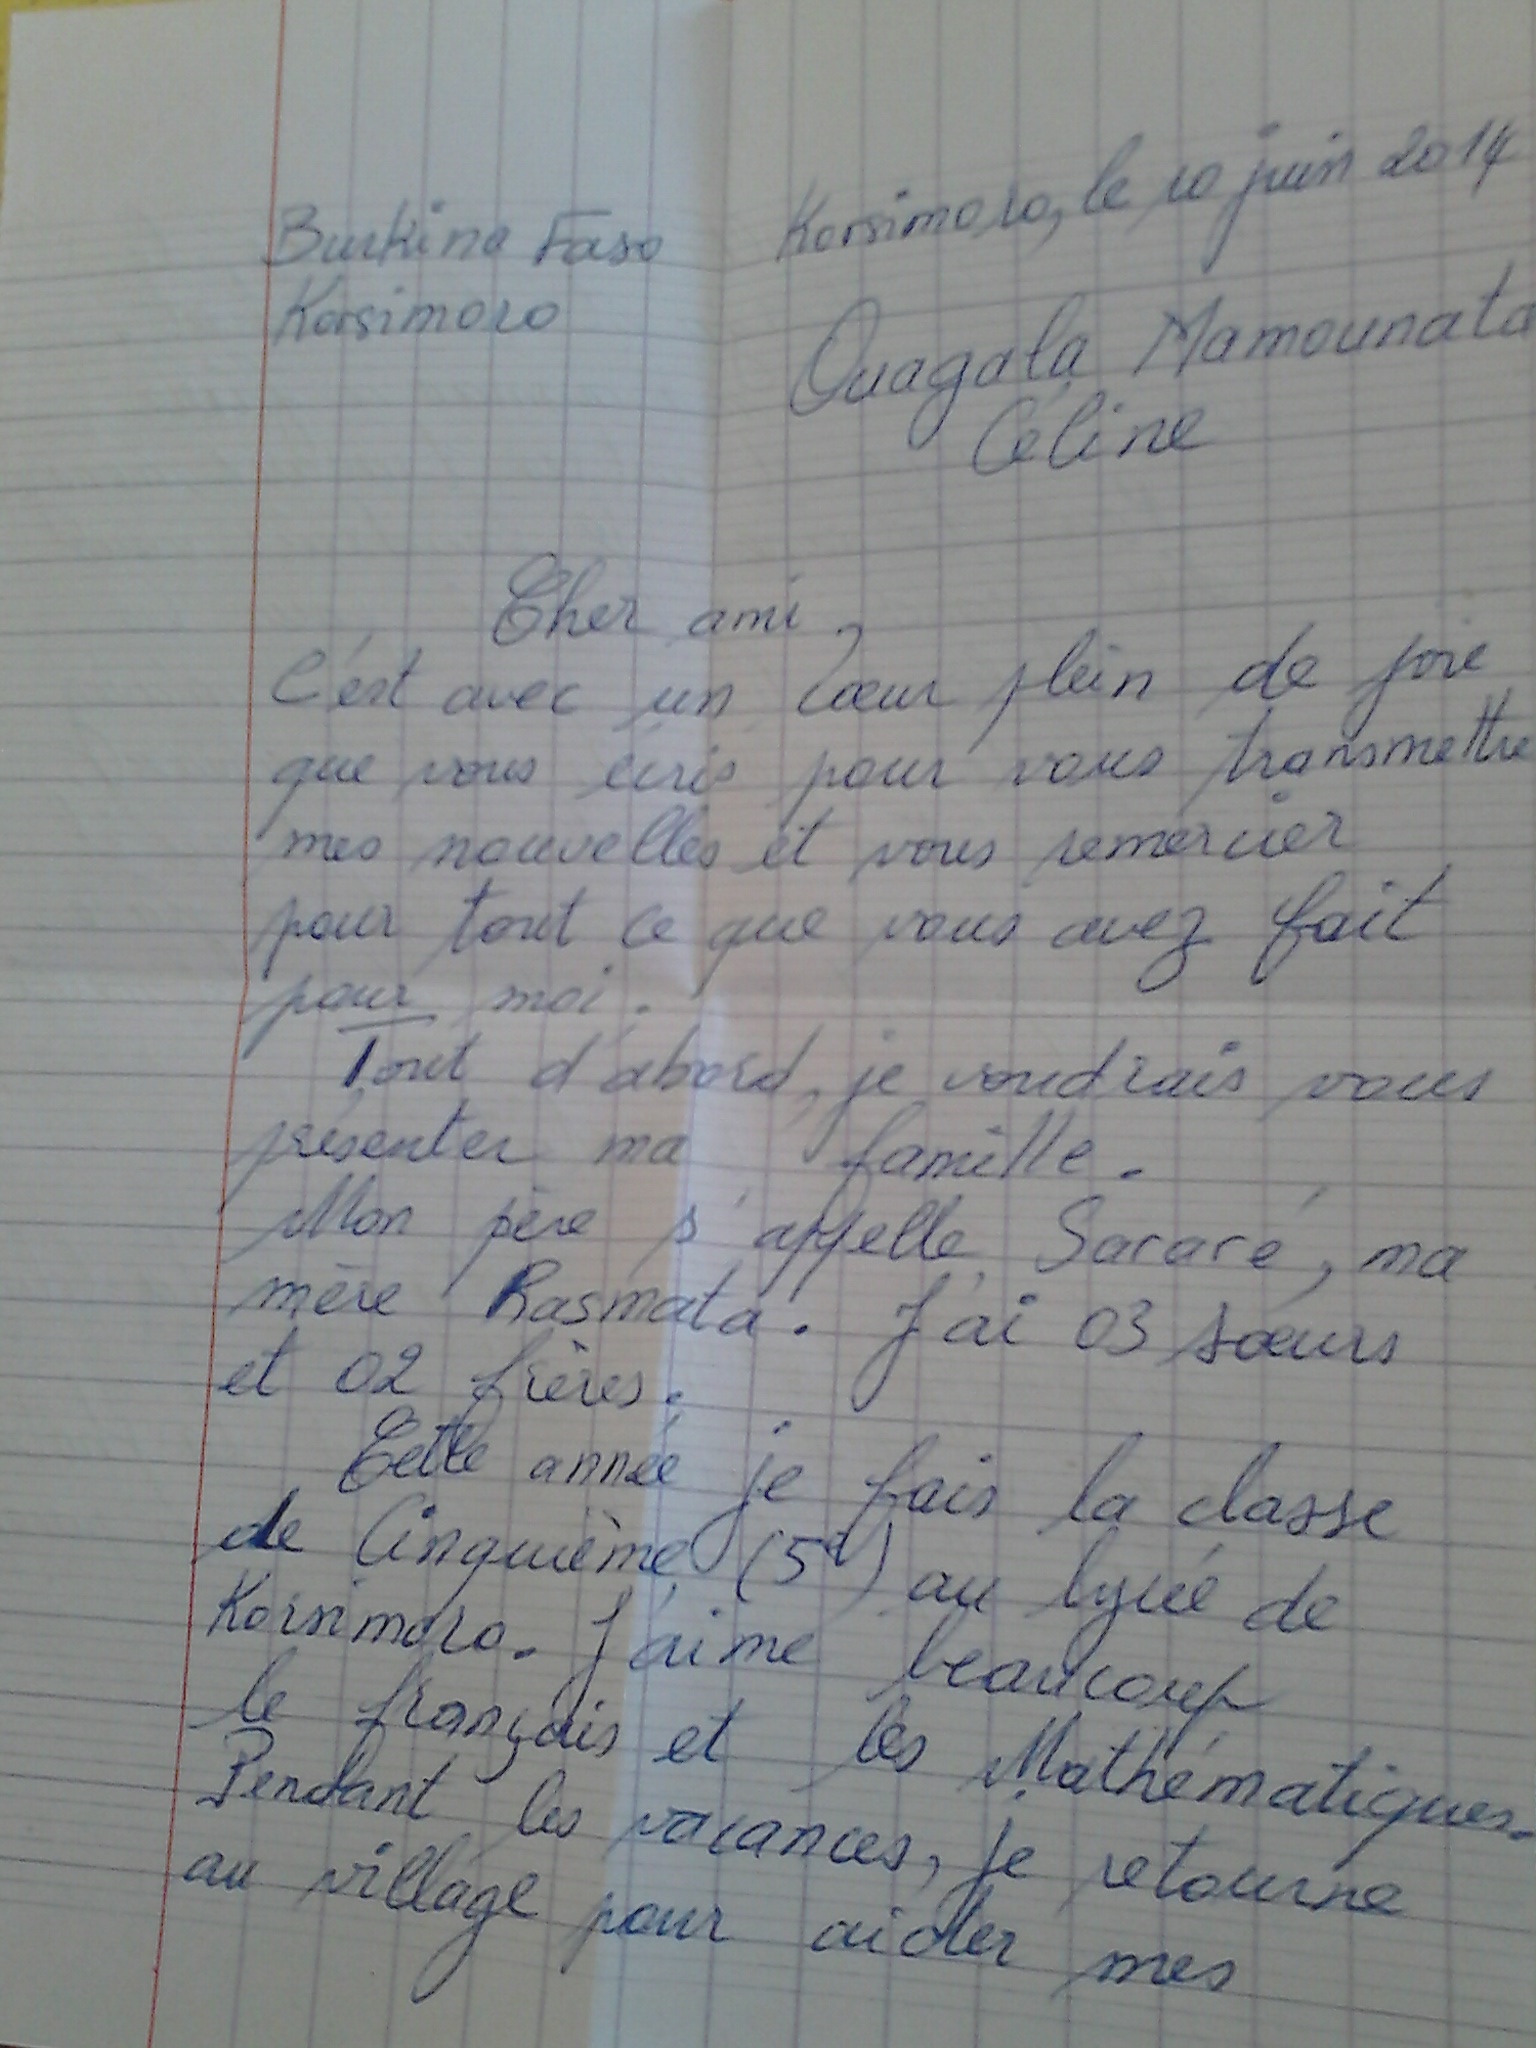 Burkina Faso
Korsimoro
Korsimoro, le 10 juin 2014
Ouagala Mamounata
Céline
Cher ami,
C'est avec un cœur plein de joie
que vous écris pour vous transmettre
mes nouvelles et vous remercier
pour tout ce que vous avez fait
pour moi.
Tout d'abord, je voudrais vous
présenter ma famille.
Mon père s'appelle Sararé, ma
mère Rasmata. J'ai 03 sœurs
et 02 frères.
Cette année je fais la classe
de Cinquième (5e) au lycée de
Korsimoro. J'aime beaucoup
le français et les Mathématiques.
Pendant les vacances, je retourne
au village pour aider mes